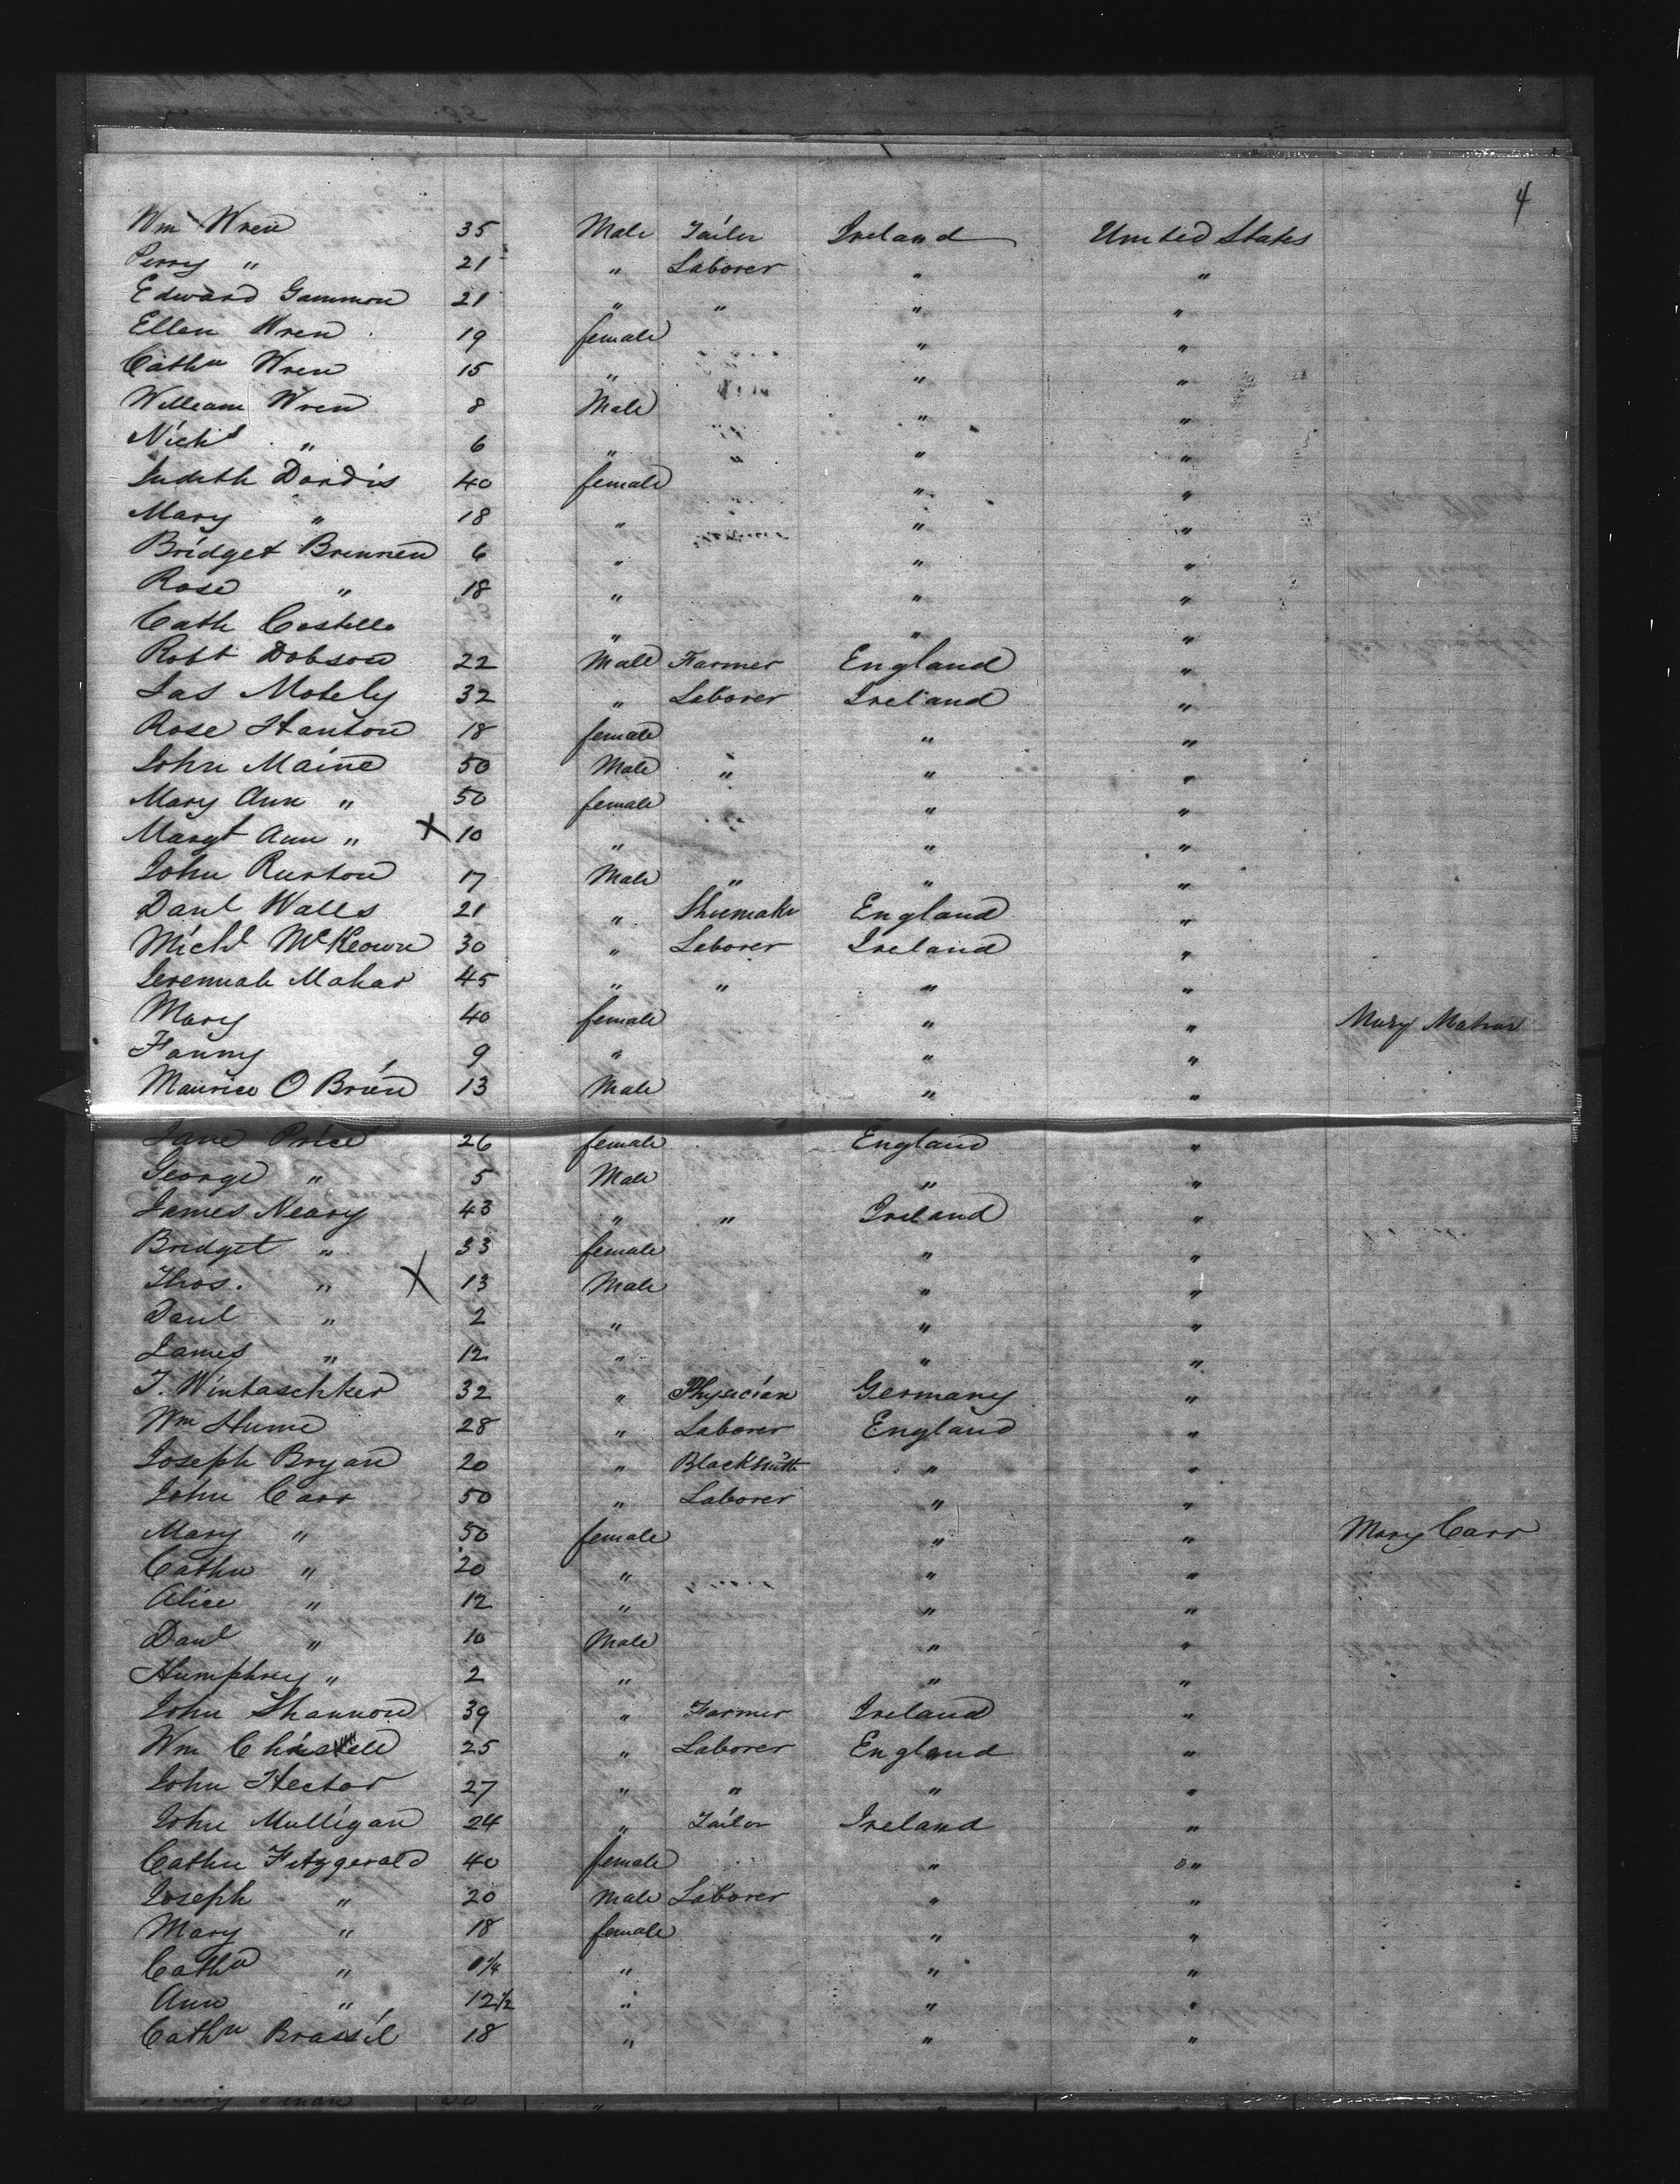 4
Wm Wren 35 Male Tailor Ireland United States
Perry " 21 " Laborer " "
Edward Gammon 21 " " " "
Ellen Wren 19 female " "
Cathn Wren 15 " " "
William Wren 8 Male " "
Nichs " 6 " " " "
Judith Dardis 40 female " "
Mary " 18 " " "
Bridget Brennen 6 " " "
Rose " 18 " " "
Cath Costello " " "
Robt Dobson 22 Male Farmer England "
Jas Motely 32 " Laborer Ireland "
Rose Hanton 18 female " "
John Maine 50 Male " " "
Mary Ann " 50 female " "
Margt Ann " X 10 " " "
John Ruxton 17 Male " " "
Danl Walls 21 " Shumakr England "
Michl McKeown 30 " Laborer Ireland "
Jeremiah Mahar 45 " " " "
Mary 40 female " " Mary Mahar
Fanny 9 " " "
Maurice O Brien 13 Male " "
Jane Price 26 female England "
George " 5 Male " "
James Neary 43 " " Ireland "
Bridget " 33 female " "
Thos. " X 13 Male " "
Danl " 2 " " "
James " 12 " " "
J. Wintaschker 32 " Physician Germany "
Wm Hume 28 " Laborer England "
Joseph Bryan 20 " Blacksmith " "
John Carr 50 " Laborer " "
Mary " 50 female " " Mary Carr
Cathn " 20 " " "
Alice " 12 " " "
Danl " 10 Male " "
Humphrey " 2 " " "
John Shannon 39 " Farmer Ireland "
Wm 25 " Laborer England "
John Hector 27 " " " "
John Mulligan 24 " Tailor Ireland "
Cathn Fitzgerald 40 female " "
Joseph " 20 Male Laborer " "
Mary " 18 female " "
Cathn " " " "
Ann " 12½ " " "
Cathn Brassil 18 " " "